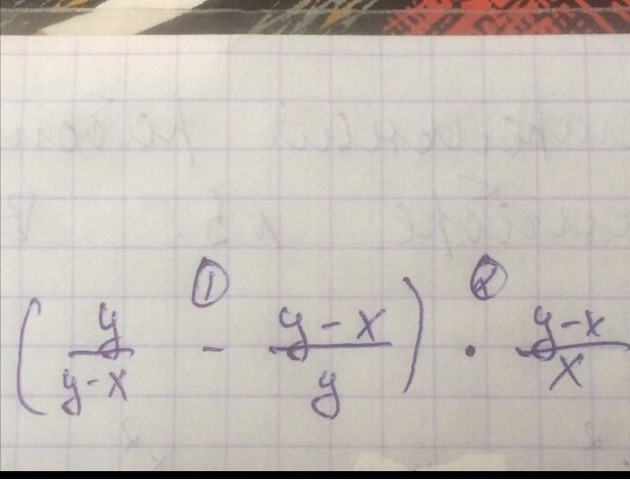 ① ②
( y/(y-x) - (y-x)/y ) · (y-x)/x